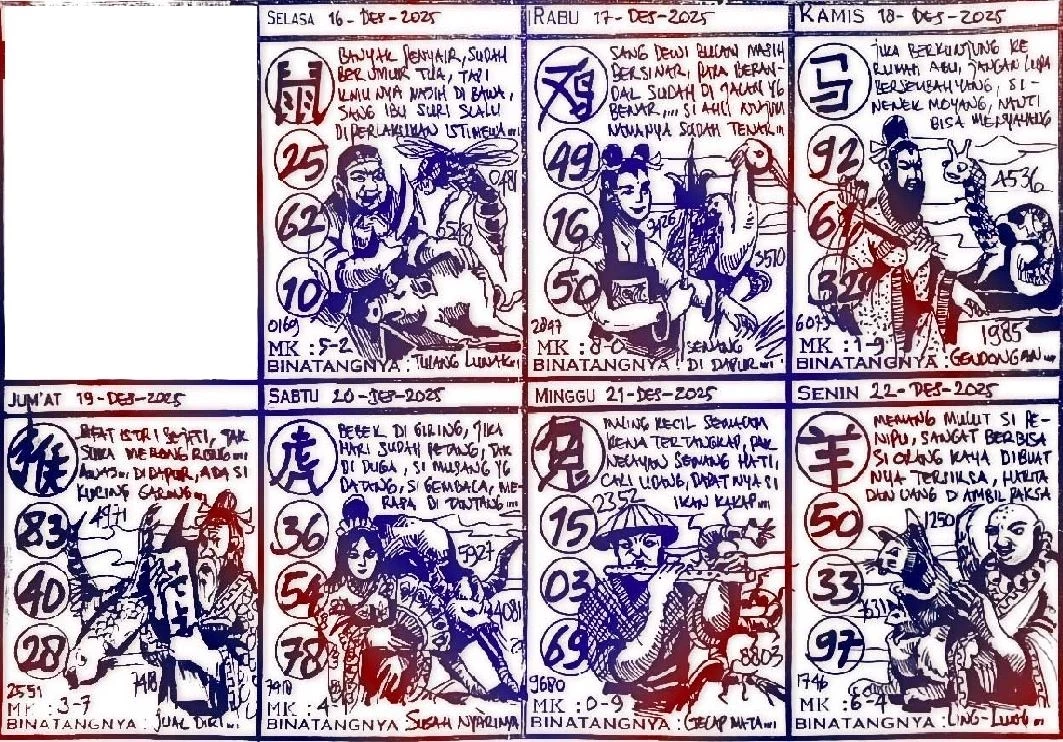 SELASA 16-DES-2025
鼠
BANYAK PENYAIR, SUDAH
BERUMUR TUA, TAPI
ILMU NYA MASIH DI BAWA,
SANG IBU SURI SLALU
DIPERLAKUKAN ISTIMEWA...
25
62
10
0481
6528
0169
MK : 5-2
BINATANGNYA : TULANG LUNAK...
RABU 17-DES-2025
鸡
SANG DEWI BULAN MASIH
BERSINAR, PARA BERAN-
DAL SUDAH DI JALAN YG
BENAR,... SI AHLI NUJUM
NAMANYA SUDAH TENAR...
49
16
50
3426
3510
2897
MK : 8-0
BINATANGNYA : SENANG
DI DAPUR...
KAMIS 18-DES-2025
马
JIKA BERKUNJUNG KE
RUMAH ABU, JANGAN LUPA
BERSEMBAHYANG, SI-
NENEK MOYANG, NANTI
BISA MENYAYANG
92
6
32
4536
6073
1985
MK : 1-9
BINATANGNYA : GENDONGAN...
JUM'AT 19-DES-2025
猴
ISTRI SEJATI, TAK
SUKA MERONGRONG...
DI DAPUR, ADA SI
KUCING GARONG...
83
40
28
4971
2551
7418
MK : 3-7
BINATANGNYA : JUAL DIRI...
SABTU 20-DES-2025
虎
BEBEK DI GIRING, JIKA
HARI SUDAH PETANG, TAK
DI DUGA, SI MUSANG YG
DATANG, SI GEMBALA, ME-
RASA DI TANTANG...
36
54
78
5927
4081
7918
MK : 4-
BINATANGNYA : SUSAH NYARINYA
MINGGU 21-DES-2025
兔
MALING KECIL SEMALAM
KENA TERTANGKAP, PAK
NELAYAN SENANG HATI,
CARI UDANG, DAPATNYA SI
IKAN KAKAP...
2352
15
03
69
8803
9680
MK : 0-9
BINATANGNYA : GELAP MATA...
SENIN 22-DES-2025
羊
MEMANG MULUT SI PE-
NIPU, SANGAT BERBISA
SI ORANG KAYA DIBUAT
NYA TERSIKSA, HARTA
DAN UANG DI AMBIL PAKSA
50
33
97
1250
6311
1746
MK : 6-4
BINATANGNYA : LING-LUNG...